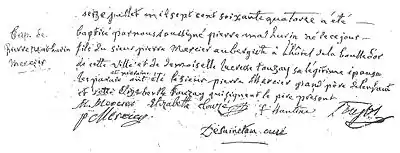 seize juillet mil sept cent soixante quatorze a été
Bap. de
baptisé par nous soussigné pierre mathurin né le ce jour
pierre mathurin
fils du sieur pierre Mercier aubergiste à l'hôtel de la boulle d'or
Mercier
de cette ville et de demoiselle Lucrece touzay sa légitime épouse
les parain et maraine ont été le sieur pierre Mercier grand père de l'enfant
et Elizabette touzay qui signent le père present
M. Mercier Elizabette
p Mercier
Desaincton curé